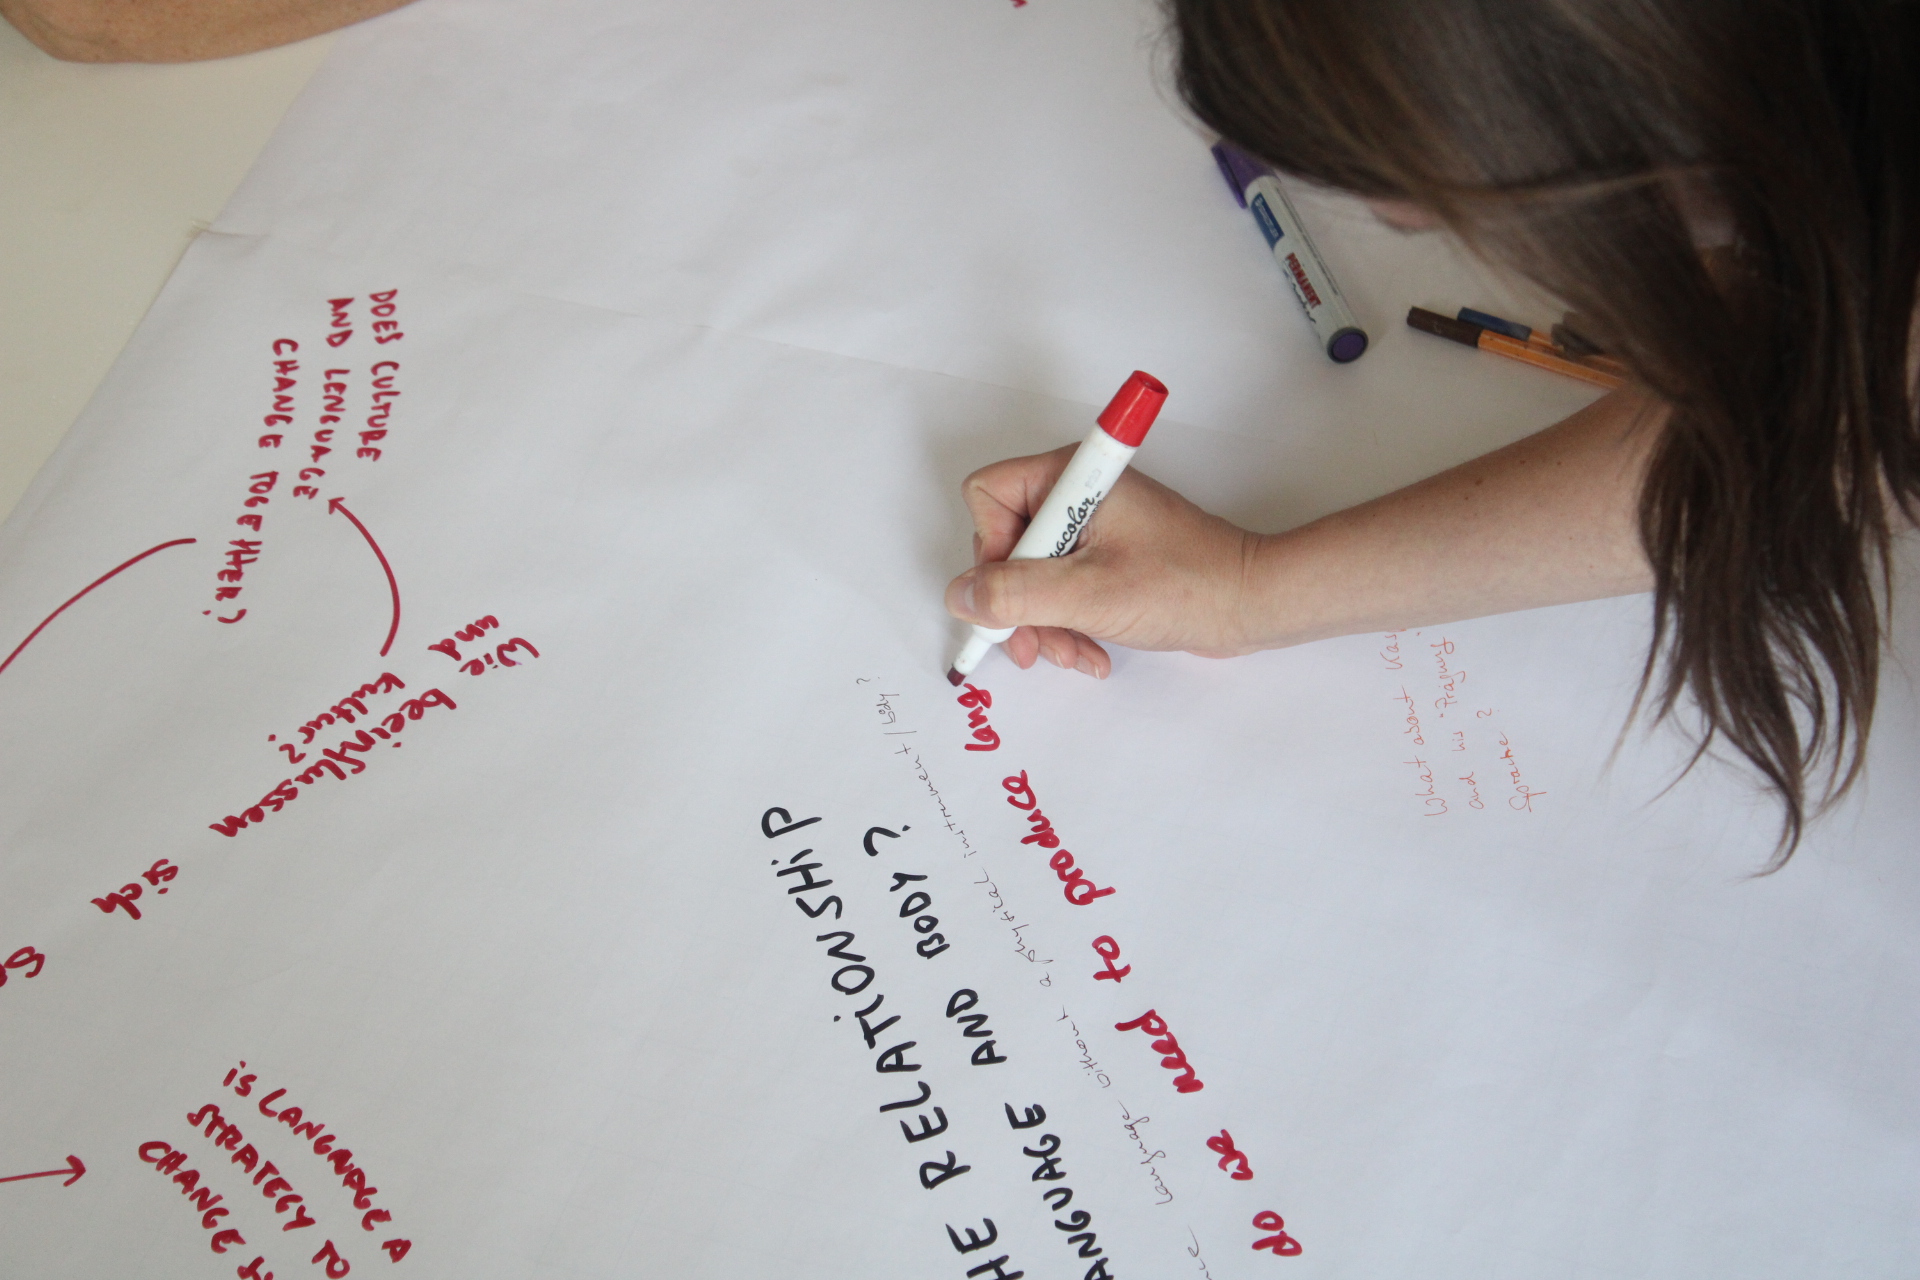 DOES CULTURE
AND LENGUAGE
CHANGE TOGETHER?
Wie beeinflussen sich
und
Kultur?
IS LANGUAGE A
STRATEGY TO
CHANGE
HE RELATIONSHIP
ANGUAGE AND BODY?
language without a physical instrument / body?
do we need to produce lang
What about
and his "Prägung"
Sprache?
PERMANENT
uacolor